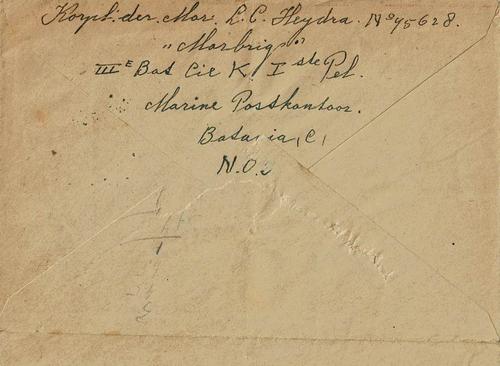 Korpl. der. Mar. L. C. Heydra. No 95628.
„Marbrig”
IIIE Bat Cie K. I ste Pel.
Marine Postkantoor.
Batavia, C,
N.O.